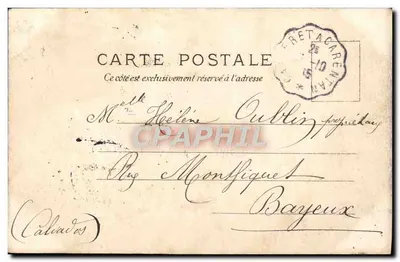 CARTE POSTALE
Ce côté est exclusivement réservé à l'adresse
CARTERET A CARENTAN
25
-10
Melle Hélène Oublin propriétaire
CPAPHIL
Rue Montfiquet
Bayeux
(Calvados)